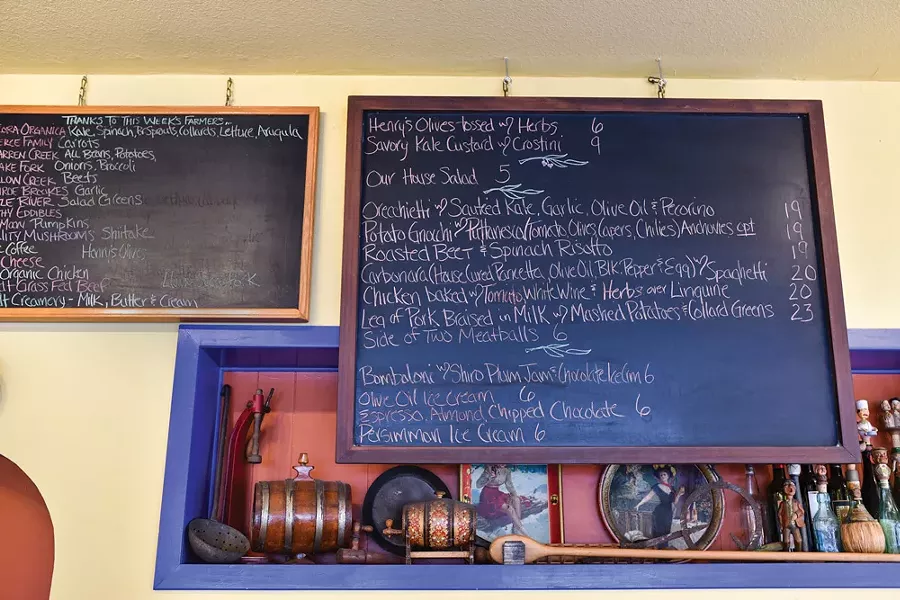 Thanks to This Week's Farmers
Organica Kale, Spinach, Br Sprouts, Collards, Lettuce, Arugula
Family Carrots
Creek All Beans, Potatoes,
Fork Onions, Broccoli
Creek Beets
Garlic
River Salad Greens
Eddibles
Pumpkins
Mushrooms Shiitake
Coffee Henry's Olives
Cheese
Organic Chicken
Grass Fed Beef
Creamery - Milk, Butter & Cream
Henry's Olives tossed w/ Herbs 6
Savory Kale Custard w/ Crostini 9
Our House Salad 5
Orechietti w/ Sautéed Kale, Garlic, Olive Oil & Pecorino 19
Potato Gnochi w/ Puttanesca (Tomato, Olives, Capers, Chilies) Anchovies opt 19
Roasted Beet & Spinach Risotto 19
Carbonara (House Cured Pancetta, Olive Oil, Blk. Pepper & Egg) w/ Spaghetti 20
Chicken baked w/ Tomato White Wine & Herbs over Linguine 20
Leg of Pork Braised in Milk w/ Mashed Potatoes & Collard Greens 23
Side of Two Meatballs 6
Bomboloni w/ Shiro Plum Jam & Chocolate Ice Crm 6
Olive Oil Ice Cream 6
Espresso, Almond Chipped Chocolate 6
Persimmon Ice Cream 6